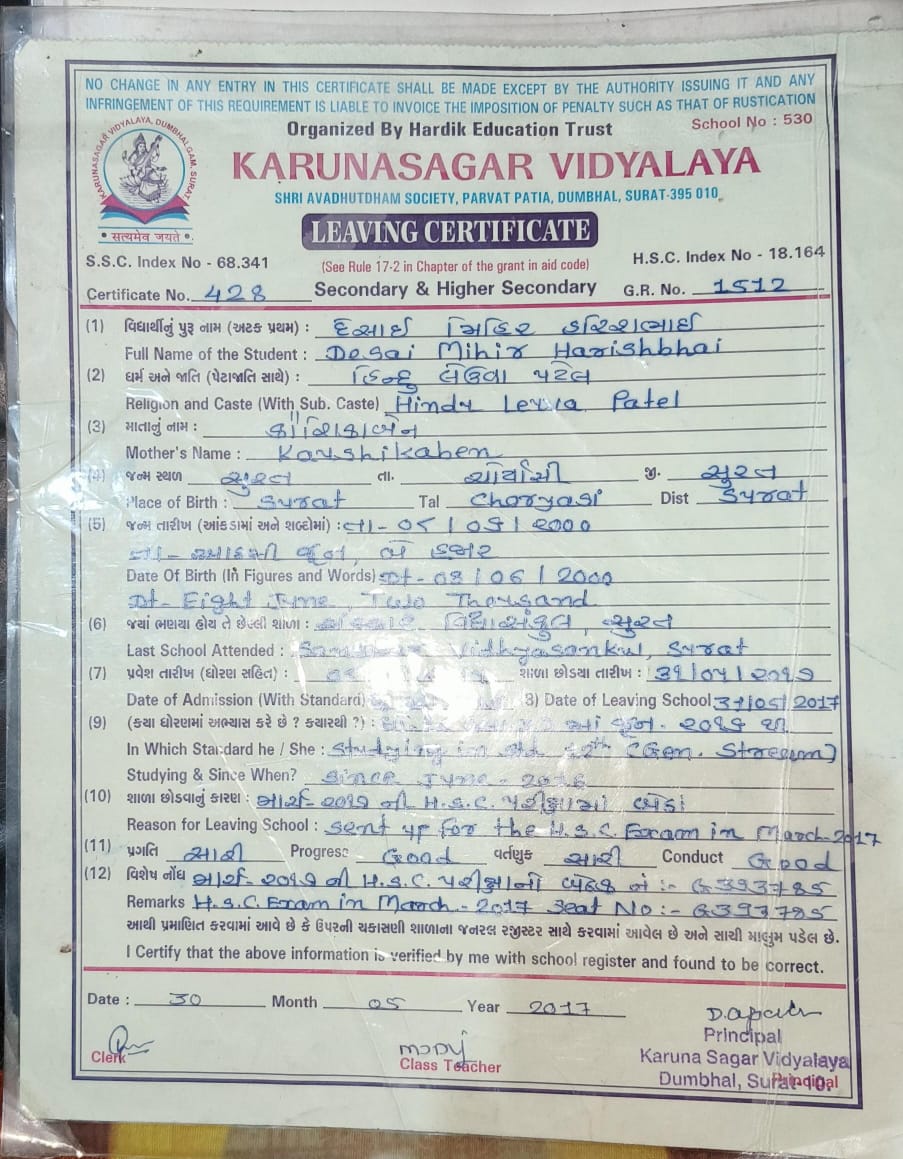 NO CHANGE IN ANY ENTRY IN THIS CERTIFICATE SHALL BE MADE EXCEPT BY THE AUTHORITY ISSUING IT AND ANY
INFRINGEMENT OF THIS REQUIREMENT IS LIABLE TO INVOICE THE IMPOSITION OF PENALTY SUCH AS THAT OF RUSTICATION
Organized By Hardik Education Trust
School No : 530
KARUNASAGAR VIDYALAYA, DUMBHAL GAM, SURAT
KARUNASAGAR VIDYALAYA
SHRI AVADHUTDHAM SOCIETY, PARVAT PATIA, DUMBHAL, SURAT-395 010.
• सत्यमेव जयते •
LEAVING CERTIFICATE
S.S.C. Index No - 68.341
(See Rule 17-2 in Chapter of the grant in aid code)
H.S.C. Index No - 18.164
Certificate No. 428
Secondary & Higher Secondary
G.R. No. 1512
(1) વિદ્યાર્થીનું પુરૂ નામ (અટક પ્રથમ) : દેસાઈ મિહિર હરિશભાઈ
Full Name of the Student : Desai Mihir Harishbhai
(2) ધર્મ અને જાતિ (પેટાજાતિ સાથે) : હિન્દુ લેઉવા પટેલ
Religion and Caste (With Sub. Caste) Hindu Levva Patel
(3) માતાનું નામ : કૌશિકાબેન
Mother's Name : Kaushikaben
(4) જન્મ સ્થળ સુરત તા. ચોર્યાસી જી. સુરત
Place of Birth : Surat Tal Choryasi Dist Surat
(5) જન્મ તારીખ (આંકડામાં અને શબ્દોમાં) : તા - ૦૮ / ૦૬ / ૨૦૦૦
તા - આઠમી જૂન, બે હજાર
Date Of Birth (In Figures and Words) Dt - 08 / 06 / 2000
Dt - Eight June, Two Thousand
(6) જ્યાં ભણયા હોય તે છેલ્લી શાળા : વિદ્યાસંકુલ, સુરત
Last School Attended : Vidhyasankul, Surat
(7) પ્રવેશ તારીખ (ધોરણ સહિત) : શાળા છોડયા તારીખ :
Date of Admission (With Standard) 8) Date of Leaving School 31/05/2017
(9) (કયા ધોરણમાં અભ્યાસ કરે છે ? કયારથી ?) : જૂન - ૨૦૧૬ થી
In Which Standard he / She : Studying in std 12th (Gen. Streem)
Studying & Since When? Since June - 2016
(10) શાળા છોડવાનું કારણ : માર્ચ - ૨૦૧૭ ની H.S.C. પરીક્ષામાં બેઠાં
Reason for Leaving School : sent up for the H.S.C. Exam in March - 2017
(11) પ્રગતિ સારી Progress Good વર્તણુક સારી Conduct Good
(12) વિશેષ નોંધ માર્ચ - ૨૦૧૭ ની H.S.C. પરીક્ષાનો બેઠક નં :- G393785
Remarks H.S.C. Exam in March - 2017 Seat No :- G393785
આથી પ્રમાણિત કરવામાં આવે છે કે ઉપરની ચકાસણી શાળાના જનરલ રજીસ્ટર સાથે કરવામાં આવેલ છે અને સાચી માલુમ પડેલ છે.
I Certify that the above information is verified by me with school register and found to be correct.
Date : 30 Month 05 Year 2017
Principal
Clerk
Class Teacher
Karuna Sagar Vidyalaya
Dumbhal, Surat-10.
Principal